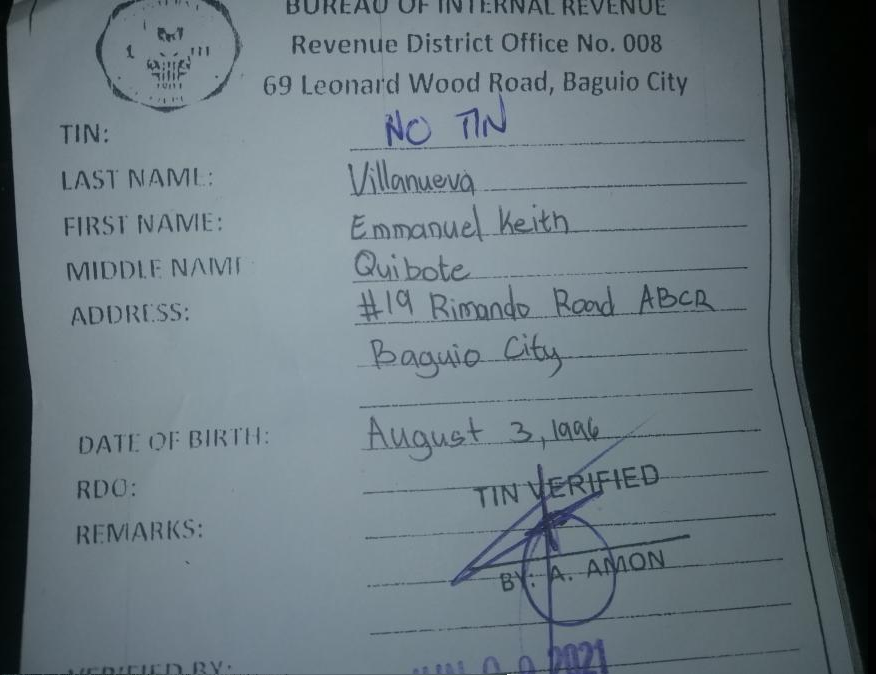 BUREAU OF INTERNAL REVENUE
Revenue District Office No. 008
69 Leonard Wood Road, Baguio City
TIN: NO TIN
LAST NAME: Villanueva
FIRST NAME: Emmanuel Keith
MIDDLE NAME Quibote
ADDRESS: #19 Rimando Road ABCR
Baguio City
DATE OF BIRTH: August 3, 1996
RDO:
TIN VERIFIED
REMARKS:
BY: A. AMON
VERIFIED BY:
2021